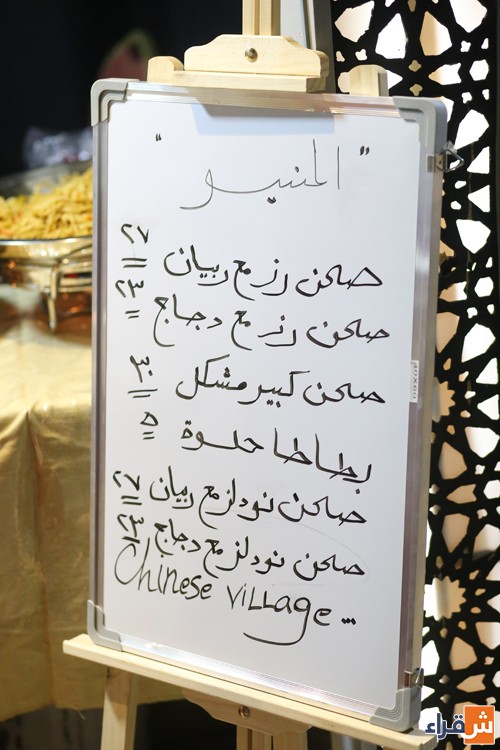 " المنيو "
صحن رز مع ربيان ٢٧
صحن رز مع دجاج ٢٣
صحن كبير مشكل ٣٠
بطاطا حلوة ٥
صحن نودلز مع ربيان ٢٧
صحن نودلز مع دجاج ٢٣
Chinese Village ...
شقراء